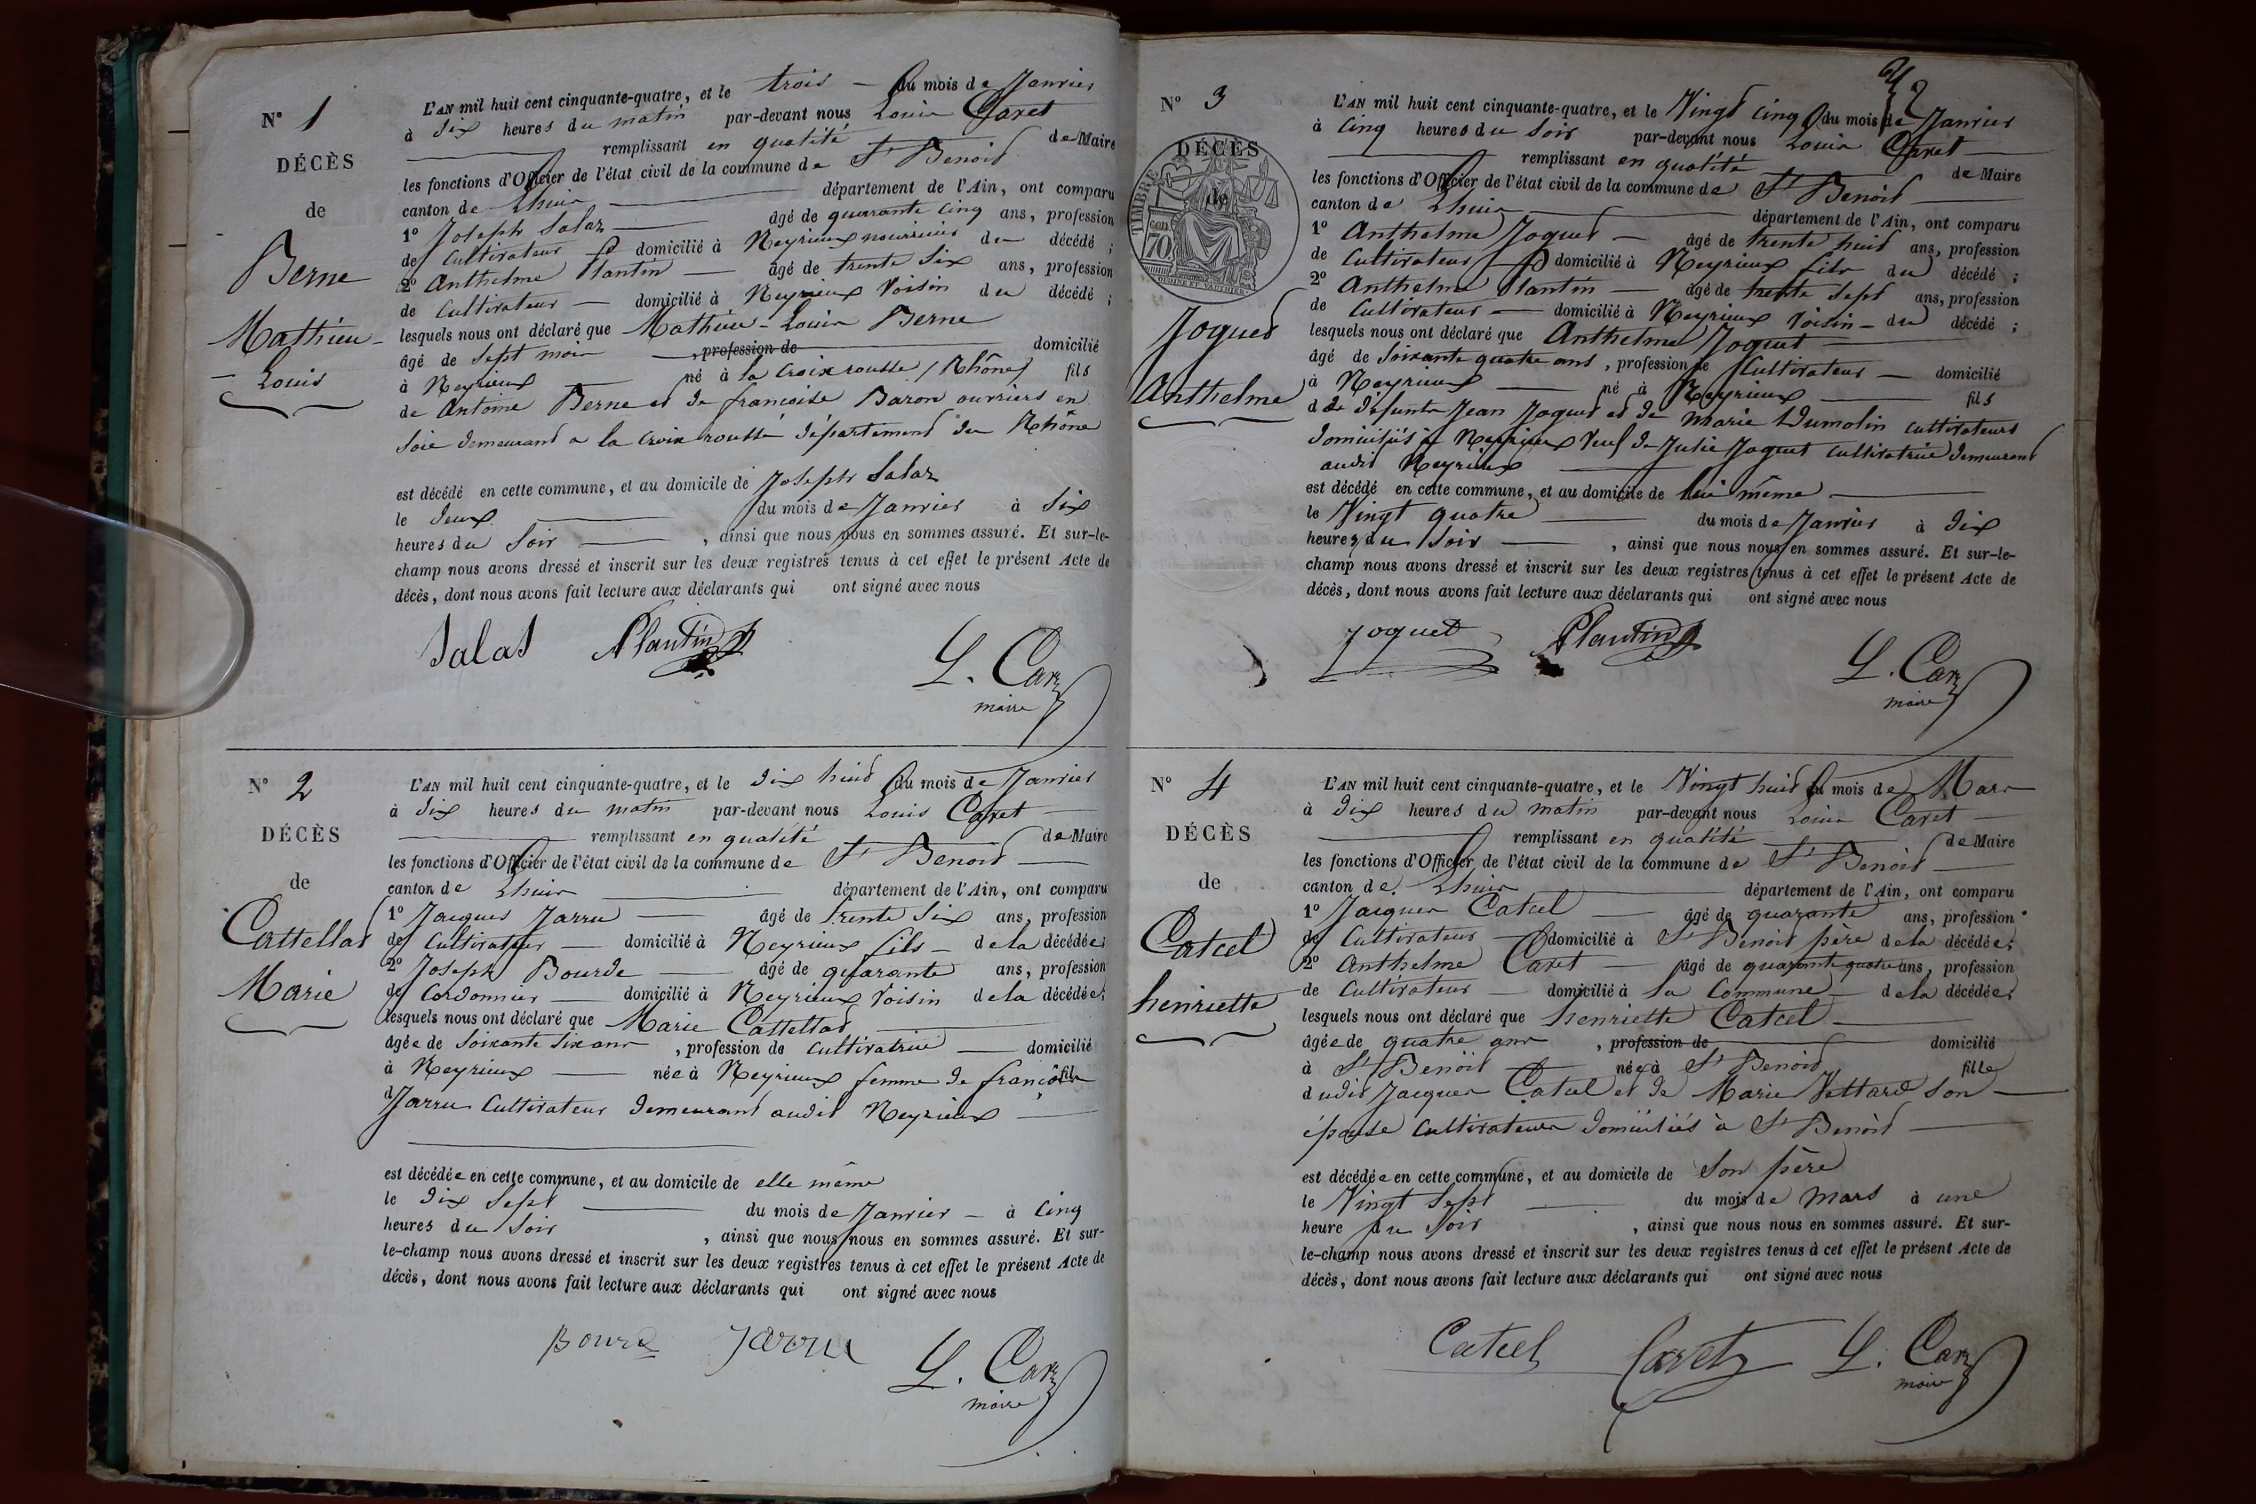 N° 1
DÉCÈS
de
Berne
Mathieu-
Louis
L'AN mil huit cent cinquante-quatre, et le trois du mois de Janvier
à dix heures du matin par-devant nous Louis Caret
remplissant en qualité de Maire
les fonctions d'Officier de l'état civil de la commune de St Benoit
canton de Lhuis département de l'Ain, ont comparu
1° Joseph Salaz âgé de quarante cinq ans, profession
de Cultivateur domicilié à Neyrieux nourricier du décédé ;
2° Anthelme Plantin âgé de trente six ans, profession
de Cultivateur domicilié à Neyrieux Voisin du décédé ;
lesquels nous ont déclaré que Mathieu-Louis Berne
âgé de sept mois , profession de domicilié
à Neyrieux né à la Croix rousse (Rhône) fils
de Antoine Berne et de françoise Baron ouvriers en
soie demeurant a la croix rousse département du Rhône
est décédé en cette commune, et au domicile de Joseph Salaz
le deux du mois de Janvier à Six
heures du Soir , ainsi que nous nous en sommes assuré. Et sur-le-
champ nous avons dressé et inscrit sur les deux registres tenus à cet effet le présent Acte de
décès, dont nous avons fait lecture aux déclarants qui ont signé avec nous
Salas Plantin
L. Car
maire
N° 2
DÉCÈS
de
Cattellad
Marie
L'AN mil huit cent cinquante-quatre, et le dix huit du mois de Janvier
à dix heures du matin par-devant nous Louis Caret
remplissant en qualité de Maire
les fonctions d'Officier de l'état civil de la commune de St Benoit
canton de Lhuis département de l'Ain, ont comparu
1° Jacques Jarru âgé de trente Six ans, profession
de Cultivateur domicilié à Neyrieux fils de la décédée ;
2° Joseph Bourde âgé de quarante ans, profession
de Cordonnier domicilié à Neyrieux Voisin de la décédée ;
lesquels nous ont déclaré que Marie Cattellad
âgée de Soixante Six ans , profession de Cultivatrice domicilié
à Neyrieux née à Neyrieux femme de françois fils
d Jarru Cultivateur demeurant audit Neyrieux
est décédée en cette commune, et au domicile de elle même
le dix Sept du mois de Janvier à Cinq
heures du Soir , ainsi que nous nous en sommes assuré. Et sur-
le-champ nous avons dressé et inscrit sur les deux registres tenus à cet effet le présent Acte de
décès, dont nous avons fait lecture aux déclarants qui ont signé avec nous
Bourd Jarru
L. Car
maire
2
N° 3
DÉCÈS
de
TIMBRE
70
Joguet
Anthelme
L'AN mil huit cent cinquante-quatre, et le Vingt Cinq du mois de Janvier
à Cinq heures du Soir par-devant nous Louis Caret
remplissant en qualité de Maire
les fonctions d'Officier de l'état civil de la commune de St Benoit
canton de Lhuis département de l'Ain, ont comparu
1° Anthelme Joguet âgé de trente huit ans, profession
de Cultivateur domicilié à Neyrieux fils du décédé ;
2° Anthelme Plantin âgé de trente Sept ans, profession
de Cultivateur domicilié à Neyrieux Voisin du décédé ;
lesquels nous ont déclaré que Anthelme Joguet
âgé de Soixante quatre ans , profession de Cultivateur domicilié
à Neyrieux né à Neyrieux fils
d de défunts Jean Joguet et de Marie Dumolin cultivateurs
domiciliés à Neyrieux Veuf de Julie Joguet cultivatrice demeurant
audit Neyrieux
est décédé en cette commune, et au domicile de lui même
le Vingt quatre du mois de Janvier à dix
heures du Soir , ainsi que nous nous en sommes assuré. Et sur-le-
champ nous avons dressé et inscrit sur les deux registres tenus à cet effet le présent Acte de
décès, dont nous avons fait lecture aux déclarants qui ont signé avec nous
Joguet Plantin
L. Car
maire
N° 4
DÉCÈS
de
Catcel
henriette
L'AN mil huit cent cinquante-quatre, et le Vingt huit du mois de Mars
à dix heures du matin par-devant nous Louis Caret
remplissant en qualité de Maire
les fonctions d'Officier de l'état civil de la commune de St Benoit
canton de Lhuis département de l'Ain, ont comparu
1° Jacques Catcel âgé de quarante ans, profession
de Cultivateur domicilié à St Benoit père de la décédée ;
2° Anthelme Caret âgé de quarante quatre ans, profession
de Cultivateur domicilié à la Commune de la décédée ;
lesquels nous ont déclaré que henriette Catcel
âgée de quatre ans , profession de domicilié
à St Benoit née à St Benoit fille
d udit Jacques Catcel et de Marie Vettard son
épouse Cultivateurs domiciliés à St Benoit
est décédée en cette commune, et au domicile de Son père
le Vingt Sept du mois de Mars à une
heure du Soir , ainsi que nous nous en sommes assuré. Et sur-
le-champ nous avons dressé et inscrit sur les deux registres tenus à cet effet le présent Acte de
décès, dont nous avons fait lecture aux déclarants qui ont signé avec nous
Catcel Caret L. Car
maire